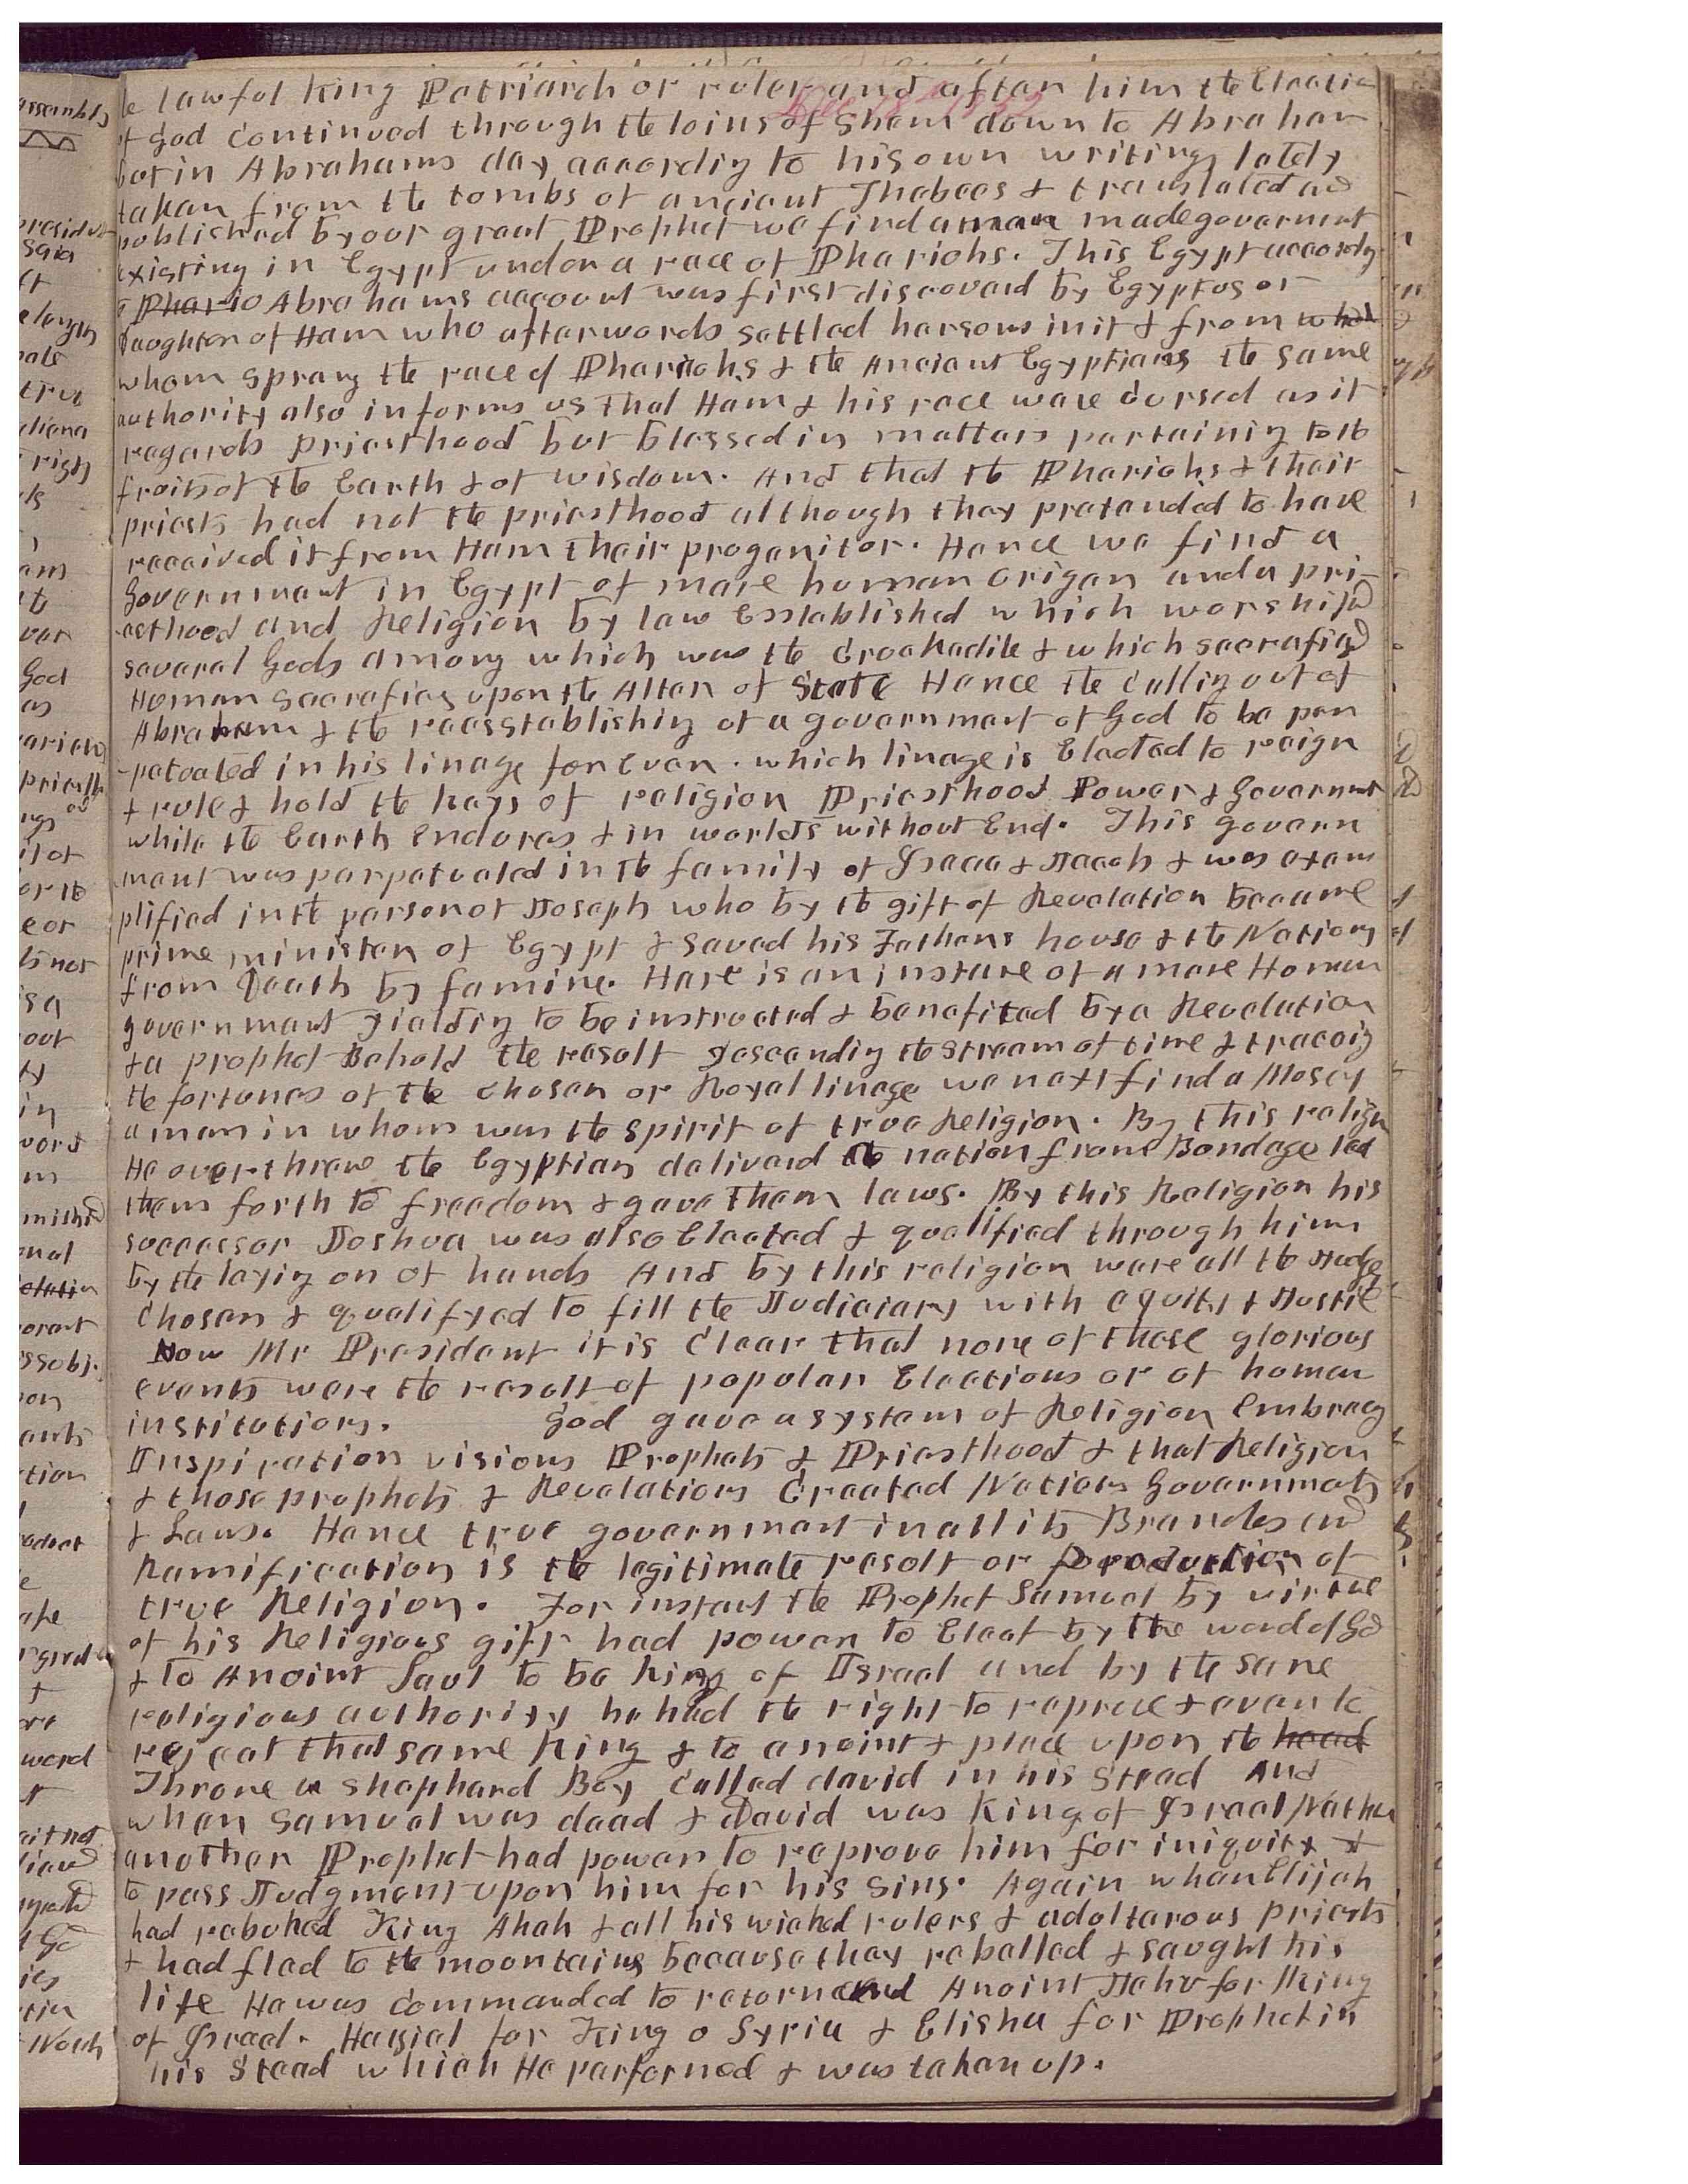 Dec 18th 1852
lawful King Patriarch or ruler and after him the Election
of God continued through the loins of Shem down to Abraham
but in Abrahams day according to his own writings lately
taken from the tombs of ancient Thebees & translated and
published by our great Prophet we find a man made goverment
existing in Egypt under a race of Phariohs. This Egypt accordig
Phario Abrahams account was first discoverd by Egyptus or
daughter of Ham who afterwords settled har sons in it & from whom
whom sprang the race of Phariohs & the Ancient Egyptians the same
authority also informs us that Ham & his race ware cursed as it
regards priesthood but blessed in matters partaining to the
fruits of the Earth & of wisdom. And that the Phariohs & their
priests had not the priesthood although they pretended to have
received it from Ham their progenitor. Hence we find a
Government in Egypt of mare human origen and a pri-
-esthood and Religion by law Esstablished which worshipd
several Gods among which was the Crockadile & which sacrafizd
Human sacrafies upon the Altar of State Hence the calling out of
Abraham & the reesstablishing of a government of God to be per
-petuated in his linage for Ever. which linage is Elected to reign
& rule & hold the keys of religion Priesthood Power & Government
while the Earth Endures & in worlds without End. This govern
ment was perpetuated in the family of Isaac & Jacob & was exem
plified in the person of Joseph who by the gift of Revelation became
prime minister of Egypt & saved his Fathers house & the Nations
from Death by famine. Hare is an instance of a mare Human
government yielding to be instructed & benefited by a Revelation
& a prophet Behold the result descending the stream of time & traceig
the fortunes of the chosen or Royal linage we next find a Moses
a man in whom was the spirit of true Religion. By this religion
He over threw the Egyptians deliverd the nation from Bondage led
them forth to freedom & gave them laws. By this Religion his
successor Joshua was also Elected & qualified through him
by the laying on of hands And by this religion ware all the Judges
Chosen & qualifyed to fill the Judiciary with equity & Justice
Now Mr President it is clear that none of these glorious
events were the result of popular Elections or of human
institutions. God gave a system of Religion Embracig
Inspiration visions Prophets & Priesthood & that Religion
& those prophets & Revelations Created Nations Governments
& Laws. Hence true government in all its Branches and
Ramification is the legitimate result or production of
true Religion. For instant the Prophet Samuel by virtue
of his Religious gift had power to Elect by the word of God
& to Anoint Saul to be king of Israel and by the same
religious authority he had the right to reprove & even to
reject that same King & to anoint & place upon the head
Throne a Shephard Boy Called david in his Stead And
when Samuel was dead & David was King of Israel Nathan
another Prophet had power to reprove him for iniquity &
to pass Judgment upon him for his sins. Again when Elijah
had rebuked King Ahab & all his wicked rulers & adultarous priests
& had fled to the mountains because they rebelled & saught his
life He was commanded to return and Anoint Jehu for King
of Israel. Hasial for King o Syria & Elisha for Prophet in
his Stead which He performed & was taken up.